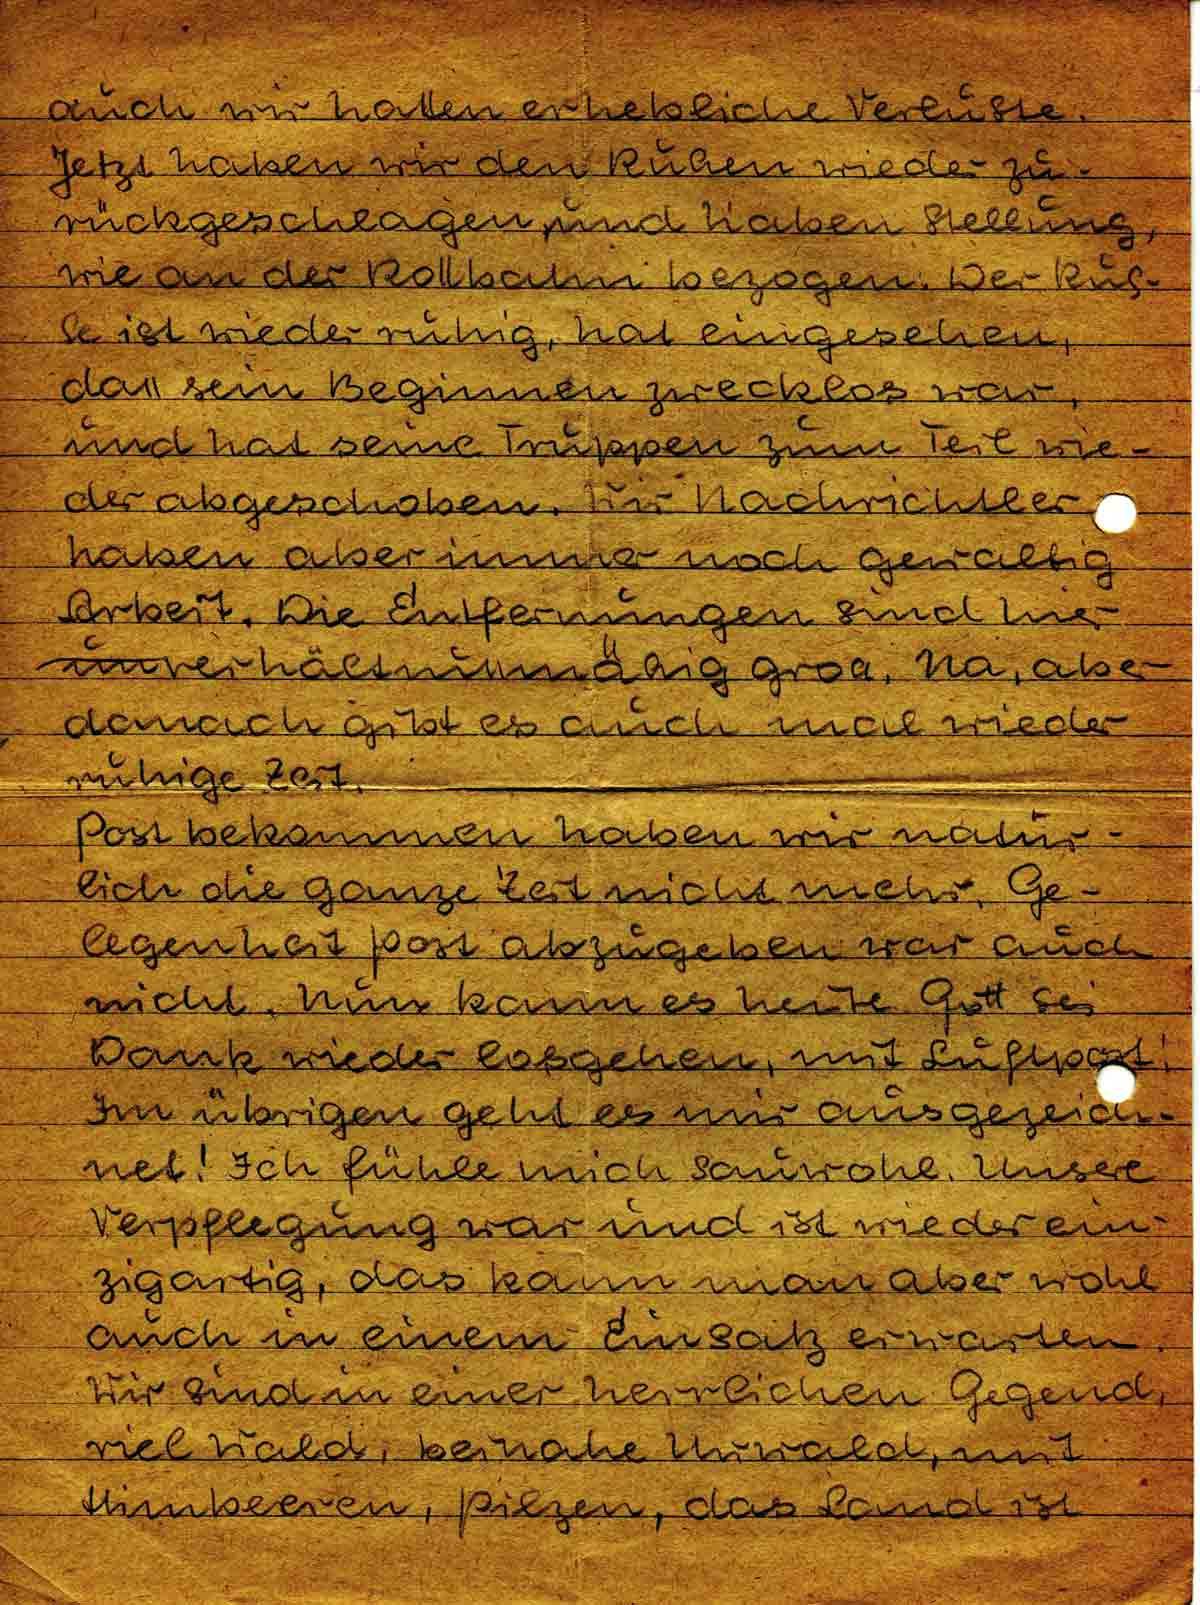 auch wir hatten erhebliche Verluste.
Jetzt haben wir den Rußen wieder zu-
rückgeschlagen, und haben Stellung,
wie an der Rollbahn bezogen. Der Rus-
se ist wieder ruhig, hat eingesehen,
daß sein Beginnen zwecklos war,
und hat seine Truppen zum Teil wie-
der abgeschoben. Wir Nachrichtler
haben aber immer noch gewaltig
Arbeit. Die Entfernungen sind hier
unverhältnismäßig groß. Na, aber
danach gibt es auch mal wieder
ruhige Zeit.
Post bekommen haben wir natür-
lich die ganze Zeit nicht mehr. Ge-
legenheit Post abzugeben war auch
nicht. Nun kann es heute Gott sei
Dank wieder losgehen, mit Luftpost!
Im übrigen geht es mir ausgezeich-
net! Ich fühle mich sauwohl. Unsere
Verpflegung war und ist wieder ein-
zigartig, das kann man aber wohl
auch in einem Einsatz erwarten.
Wir sind in einer herrlichen Gegend,
viel Wald, beinahe Urwald, mit
Himbeeren, Pilzen, das Land ist